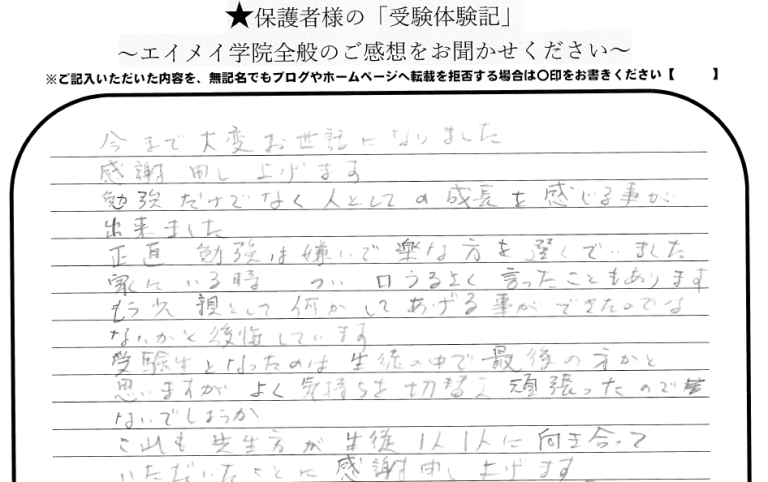 ★保護者様の「受験体験記」
～エイメイ学院全般のご感想をお聞かせください～
※ご記入いただいた内容を、無記名でもブログやホームページへ転載を拒否する場合は〇印をお書きください【　　】
今まで大変お世話になりました
感謝申し上げます
勉強だけでなく人としての成長を感じる事が
出来ました
正直 勉強は嫌いで楽な方を選んでいました
家にいる時 つい口うるさく言ったこともあります
もう少し親として何かしてあげる事ができたのでは
ないかと後悔しています
受験生となったのは生徒の中で最後の方かと
思いますが よく気持ちを切替え頑張ったので
ないでしょうか
これも先生方が生徒1人1人に向き合って
いただいたことに感謝申し上げます